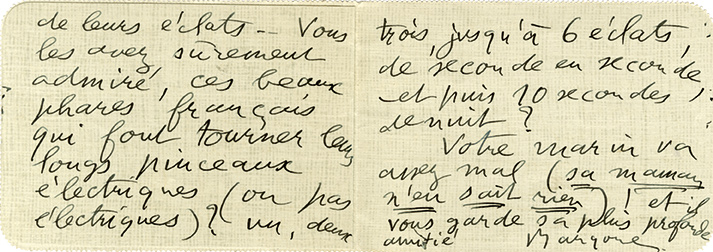 de leurs éclats -- Vous
les avez sûrement
admiré, ces beaux
phares français
qui font tourner leurs
longs pinceaux
électriques (ou pas
électriques)? un, deux
trois, jusqu'à 6 éclats,
de seconde en seconde,
et puis 10 secondes
de nuit ?
Votre marin va
assez mal (sa maman
n'en sait rien)! et il
vous garde sa plus profonde
amitié